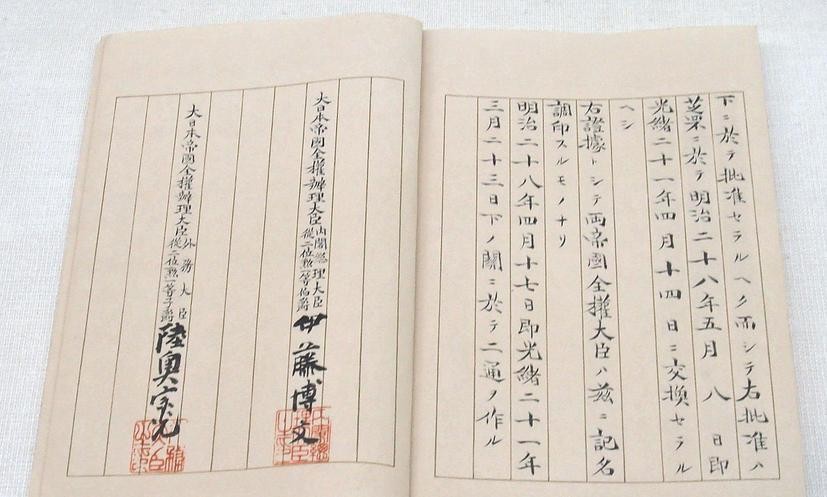 下ニ於テ批准セラルヘク而シテ右批准ハ
芝罘ニ於テ明治二十八年五月八日即
光緒二十一年四月十四日ニ交換セラル
ヘシ
右證據トシテ両帝國全權大臣ハ玆ニ記名
調印スルモノナリ
明治二十八年四月十七日即光緒二十一年
三月二十三日下ノ關ニ於テ二通ヲ作ル
大日本帝國全權辦理大臣
内閣總理大臣
從二位勲一等伯爵
伊藤博文
大日本帝國全權辦理大臣
外務大臣
從二位勲一等子爵
陸奥宗光